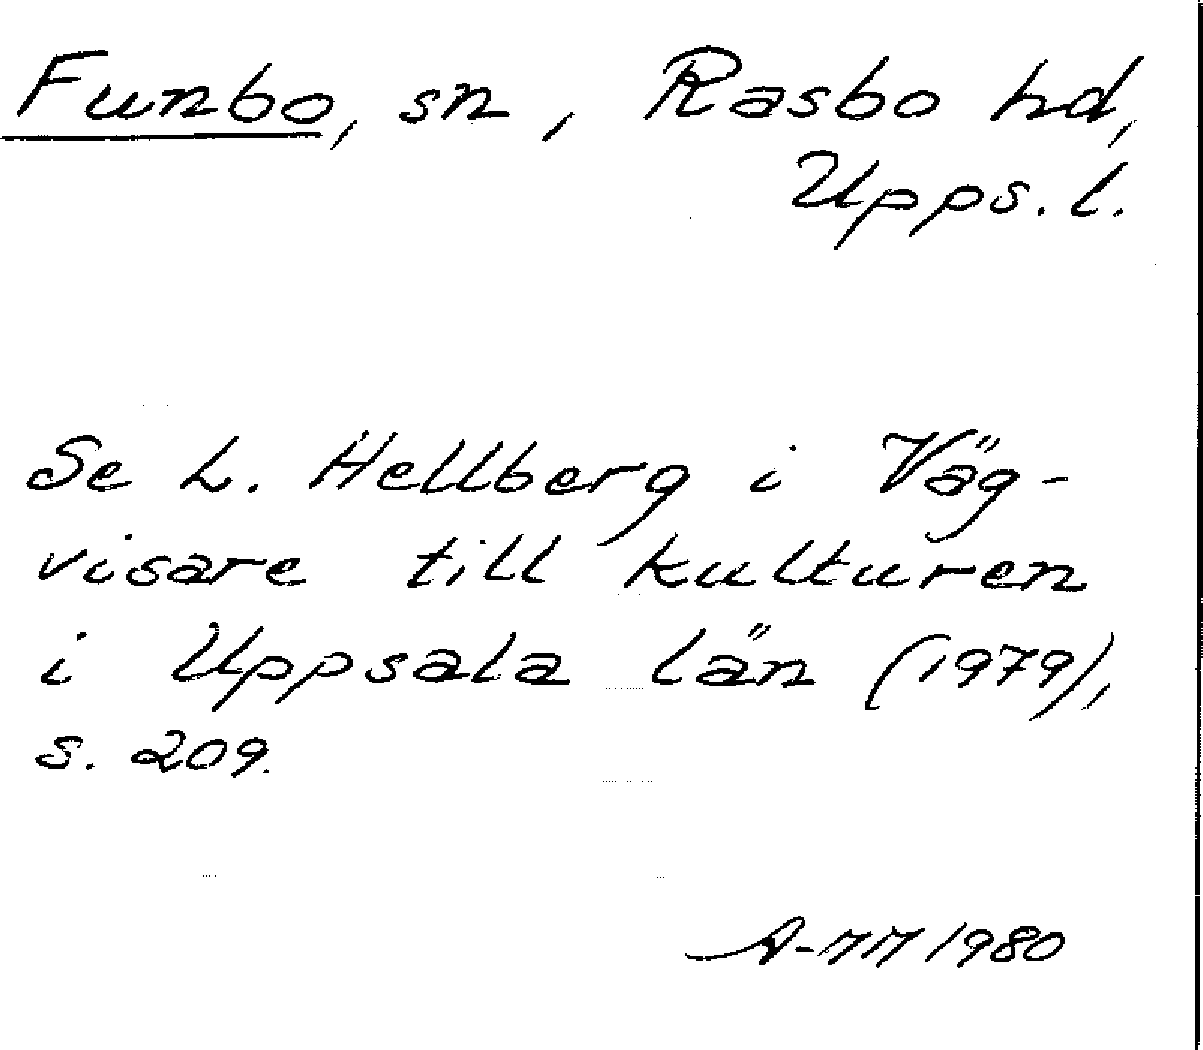 Funbo, sn, Rasbo hd,
Upps. l.
Se L. Hellberg i Väg-
visare till kulturen
i Uppsala län (1979),
s. 209.
1980